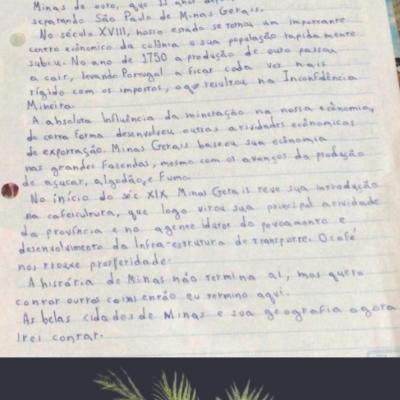 Minas de ouro, que 11 anos
separando São Paulo de Minas Gerais.
No século XVIII, nosso estado se tornou um importante
centro econômico da colônia e sua população rapidamente
subiu. No ano de 1750 a produção de ouro passou
a cair, levando Portugal a ficar cada vez mais
rígido com os impostos, o que resultou na Inconfidência
Mineira.
A absoluta influência da mineração na nossa economia,
de certa forma desenvolveu outras atividades econômicas
de exportação. Minas Gerais baseou sua economia
nas grandes fazendas, mesmo com os avanços da produção
de açucar, algodão, e fumo.
No início do séc XIX Minas Gerais teve sua introdução
na cafeicultura, que logo virou sua principal atividade
da província e no agente idutor do povoamento e
desenvolvimento da Infra-estrutura de transporte. O café
nos trouxe prosperidade.
A história de Minas não termina aí, mas quero
contar outras coisas então eu termino aqui.
As belas cidades de Minas e sua geografia agora
irei contar.